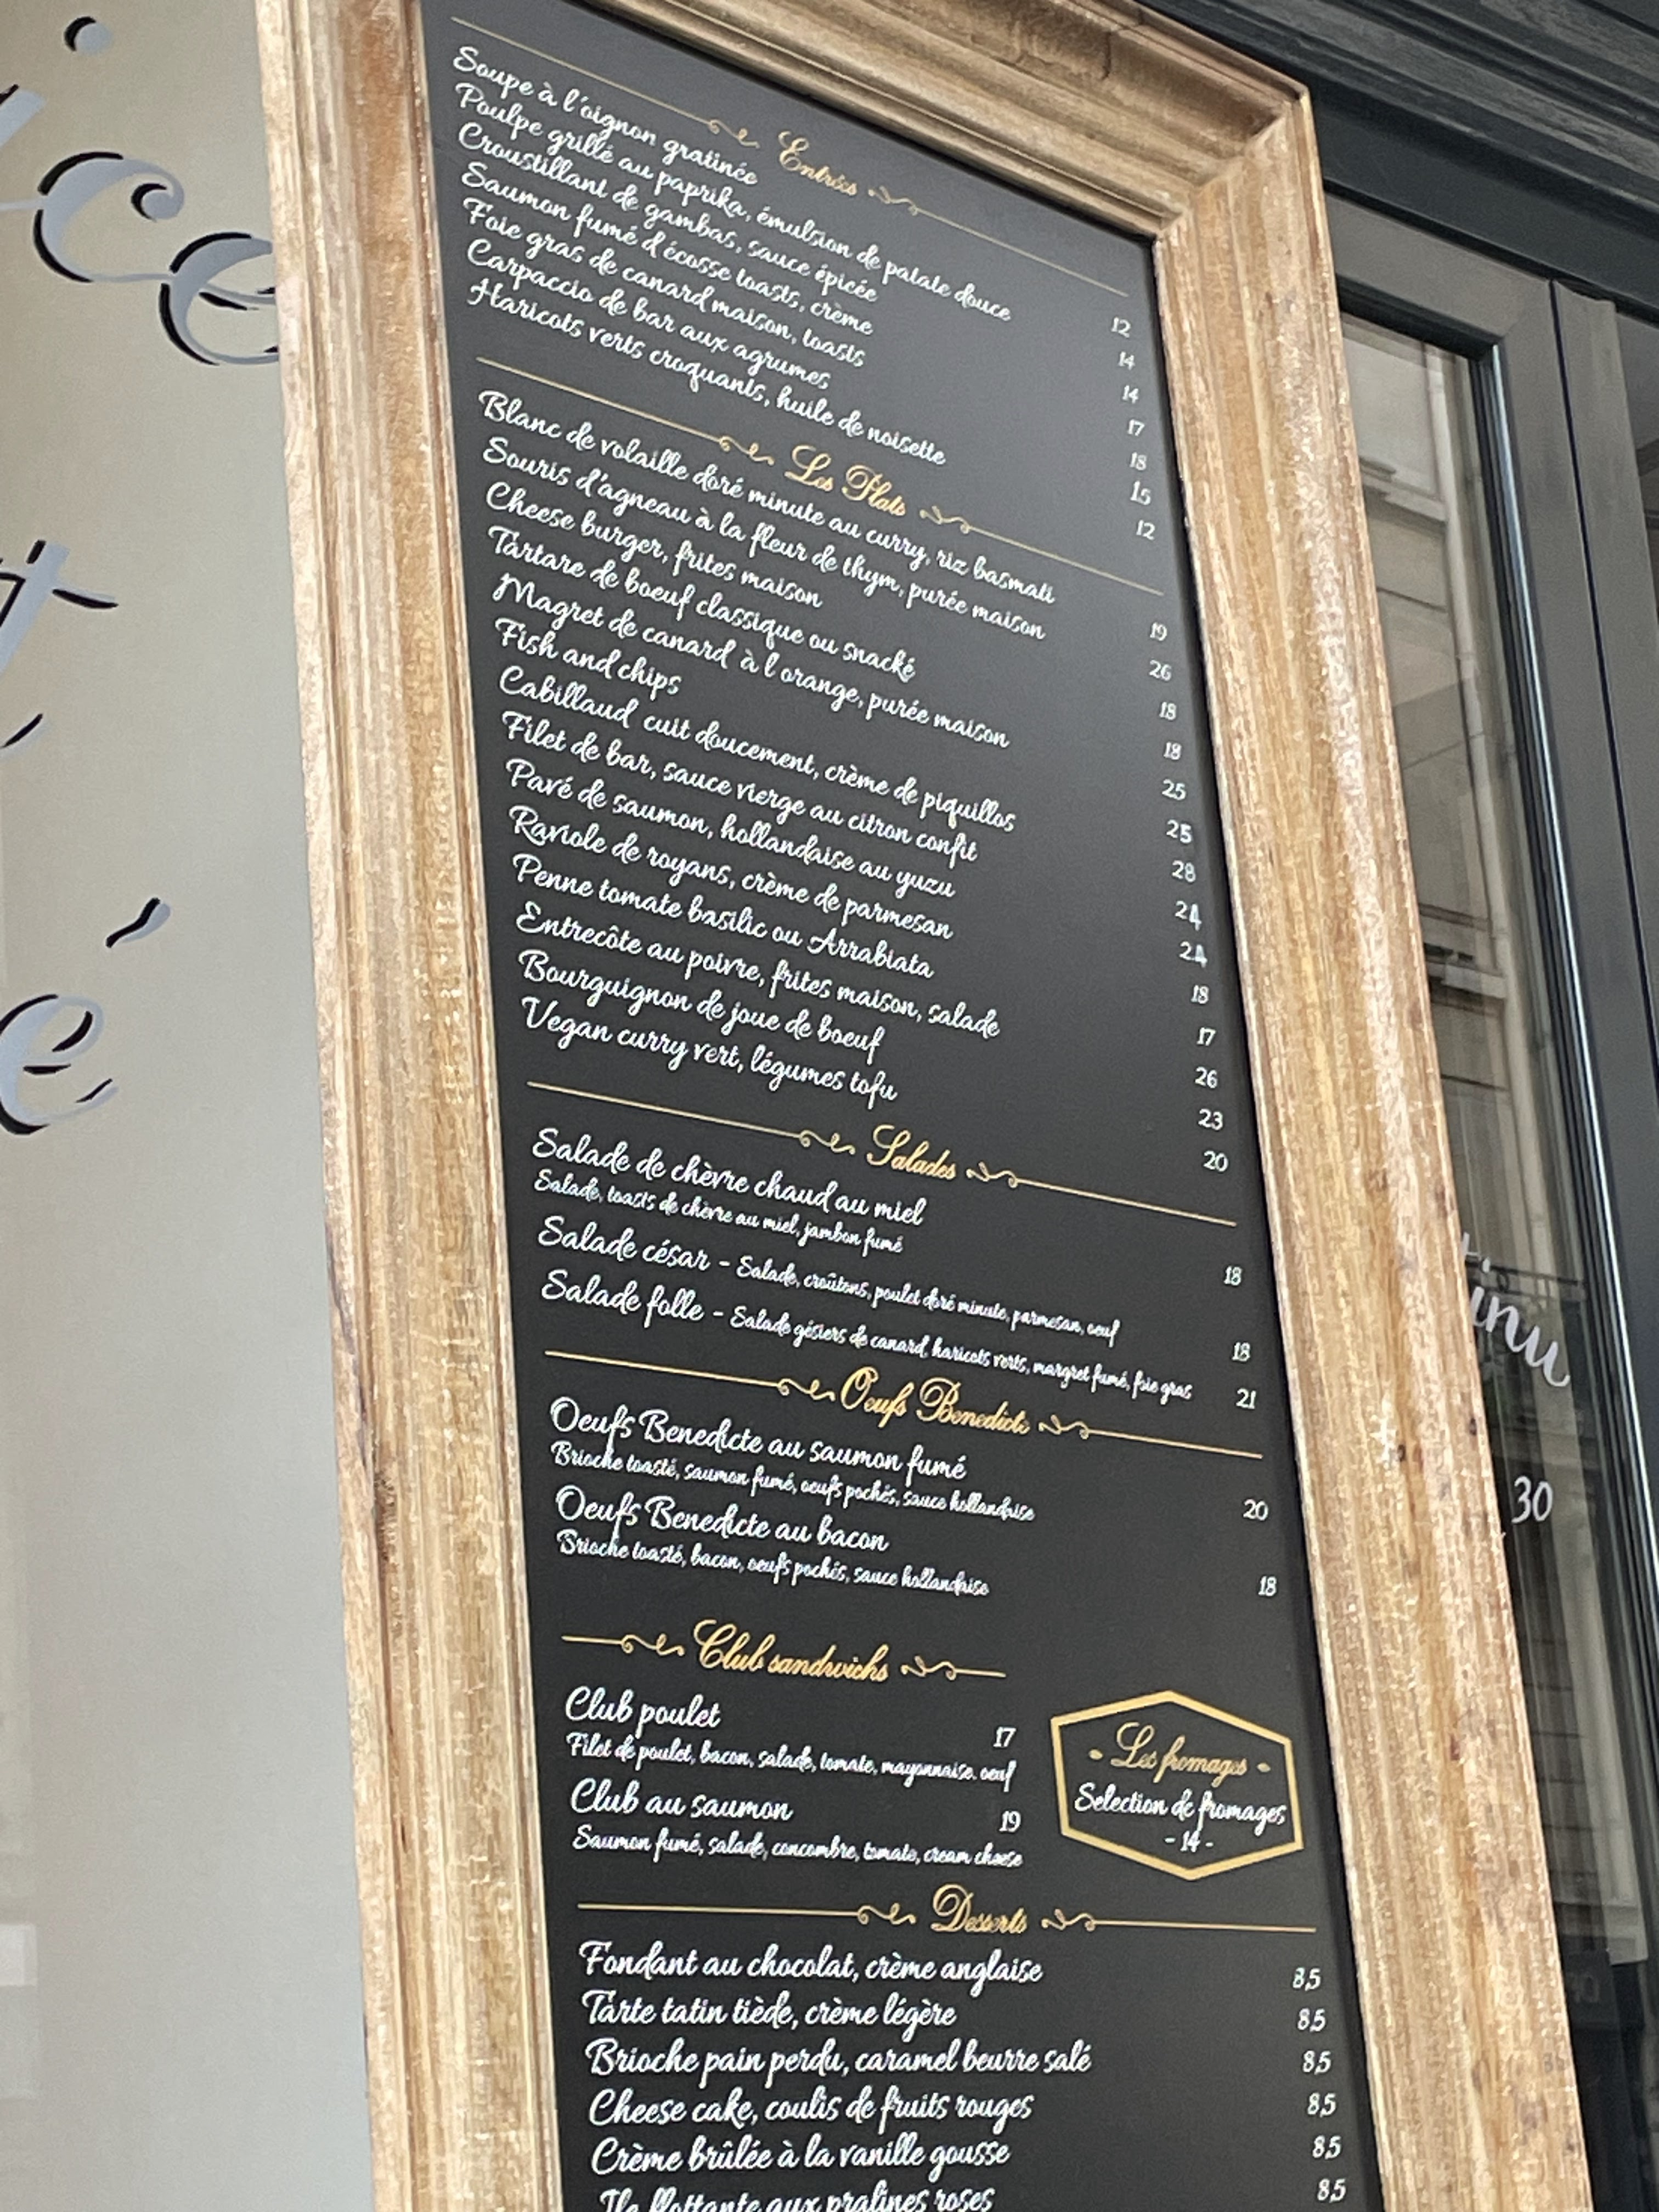 ce
t
é
Entrées
Soupe à l'oignon gratinée 12
Poulpe grillé au paprika, émulsion de patate douce 14
Croustillant de gambas, sauce épicée 14
Saumon fumé d'écosse toasts, crème 17
Foie gras de canard maison, toasts 18
Carpaccio de bar aux agrumes 15
Haricots verts croquants, huile de noisette 12
Les Plats
Blanc de volaille doré minute au curry, riz basmati 19
Souris d'agneau à la fleur de thym, purée maison 26
Cheese burger, frites maison 18
Tartare de boeuf classique ou snacké 18
Magret de canard à l'orange, purée maison 25
Fish and chips 25
Cabillaud cuit doucement, crème de piquillos 28
Filet de bar, sauce vierge au citron confit 24
Pavé de saumon, hollandaise au yuzu 24
Raviole de royans, crème de parmesan 18
Penne tomate basilic ou Arrabiata 17
Entrecôte au poivre, frites maison, salade 26
Bourguignon de joue de boeuf 23
Vegan curry vert, légumes tofu 20
Salades
Salade de chèvre chaud au miel
Salade, toasts de chèvre au miel, jambon fumé 18
Salade césar - Salade, croûtons, poulet doré minute, parmesan, oeuf 18
Salade folle - Salade gésiers de canard, haricots verts, margret fumé, foie gras 21
Oeufs Benedicte
Oeufs Benedicte au saumon fumé
Brioche toasté, saumon fumé, oeufs pochés, sauce hollandaise 20
Oeufs Benedicte au bacon
Brioche toasté, bacon, oeufs pochés, sauce hollandaise 18
Club sandwichs
Club poulet 17
Filet de poulet, bacon, salade, tomate, mayonnaise. oeuf
Club au saumon 19
Saumon fumé, salade, concombre, tomate, cream cheese
- Les fromages -
Selection de fromages
- 14 -
Desserts
Fondant au chocolat, crème anglaise 8,5
Tarte tatin tiède, crème légère 8,5
Brioche pain perdu, caramel beurre salé 8,5
Cheese cake, coulis de fruits rouges 8,5
Crème brûlée à la vanille gousse 8,5
Ile flottante aux pralines roses 8,5
tinu
30